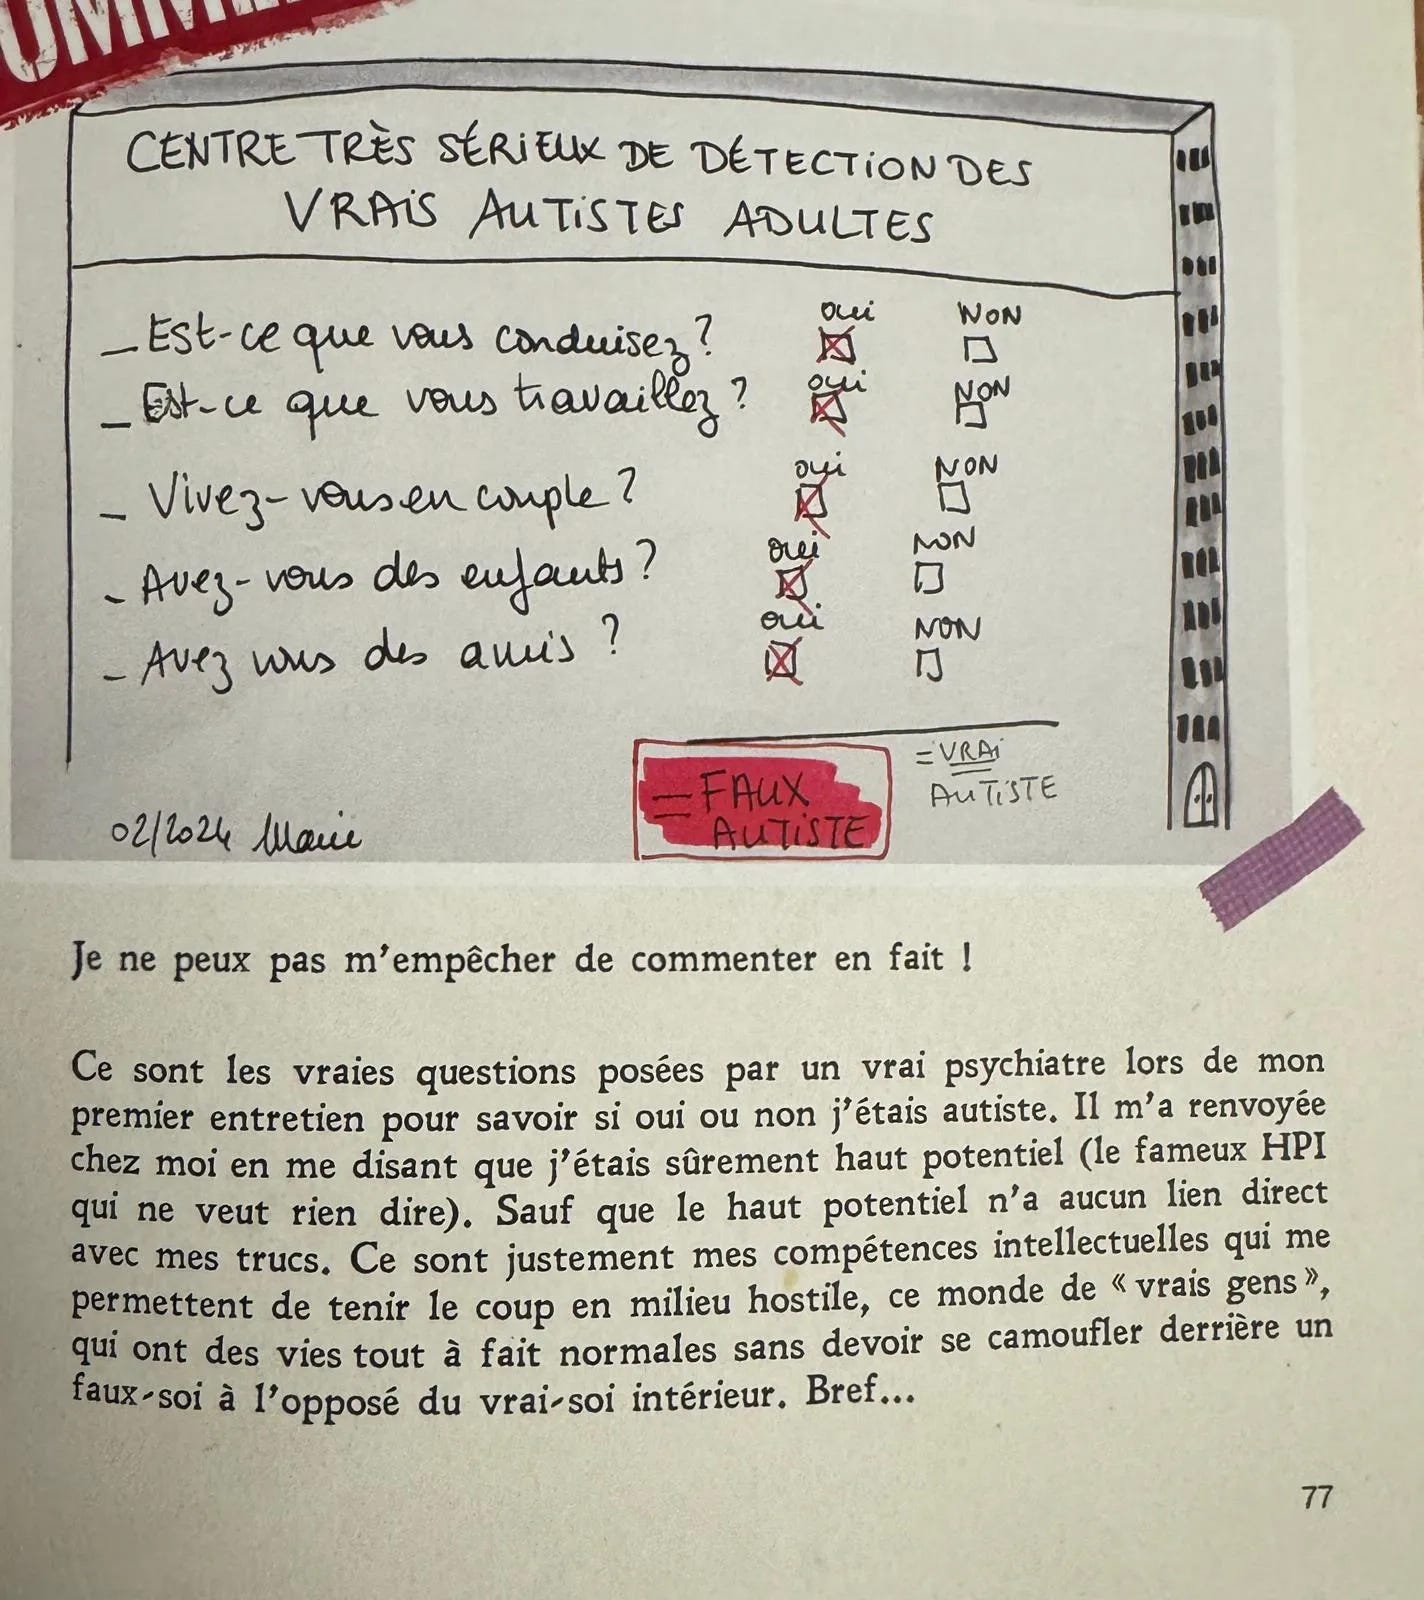 CENTRE TRÈS SÉRIEUX DE DÉTECTION DES
VRAIS AUTISTES ADULTES
_ Est-ce que vous conduisez ? oui NON
_ Est-ce que vous travaillez ? oui NON
_ Vivez-vous en couple ? oui NON
- Avez-vous des enfants ? oui NON
- Avez vous des amis ? oui NON
= FAUX
AUTISTE
= VRAi
AUTISTE
02/2024 Marie
Je ne peux pas m'empêcher de commenter en fait !
Ce sont les vraies questions posées par un vrai psychiatre lors de mon
premier entretien pour savoir si oui ou non j'étais autiste. Il m'a renvoyée
chez moi en me disant que j'étais sûrement haut potentiel (le fameux HPI
qui ne veut rien dire). Sauf que le haut potentiel n'a aucun lien direct
avec mes trucs. Ce sont justement mes compétences intellectuelles qui me
permettent de tenir le coup en milieu hostile, ce monde de « vrais gens »,
qui ont des vies tout à fait normales sans devoir se camoufler derrière un
faux-soi à l'opposé du vrai-soi intérieur. Bref...
77